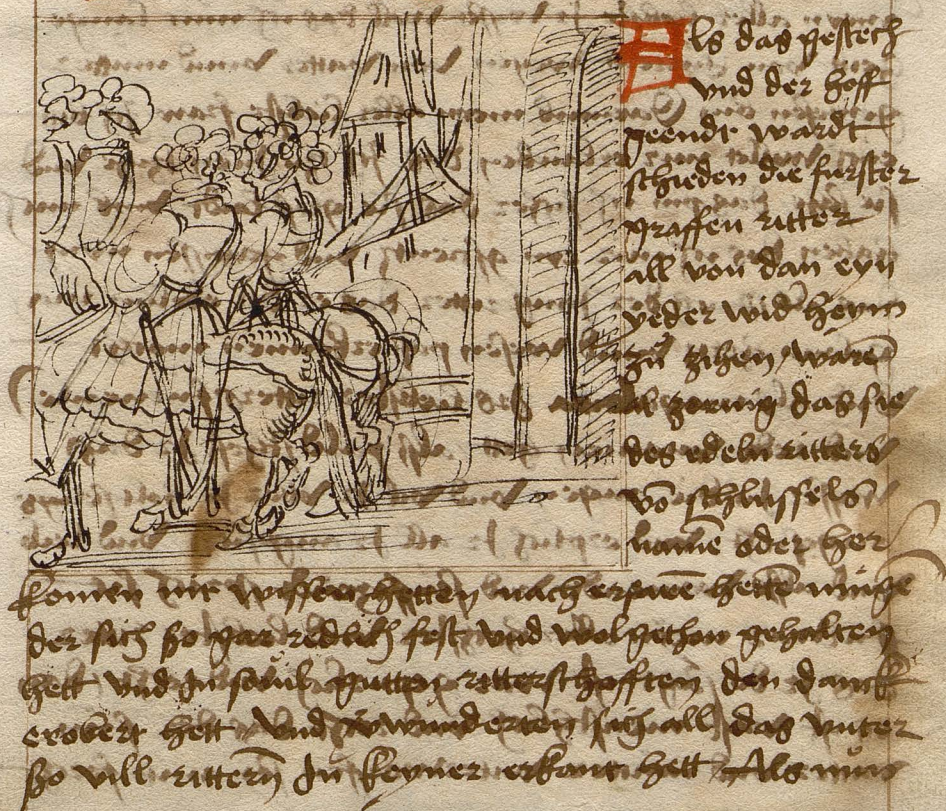 Als das gestech
vnd der hoff
geendt wardt
schieden die furster
graffen ritter
all von dan eyn
yeder wid' heym
zů zihen warē
al zornig das sie
des edeln ritters
vō schlussels
namē oder her
komen nit wissen hetten nach erparē hettē
der sich so gar redlich fest vnd wolgethan gehalten
hett vnd In souil gutten ritterschafften den danck
erobert hett vnd v'wunderten sich all das vnter
so vill rittern In keyner erkant hett Als nun